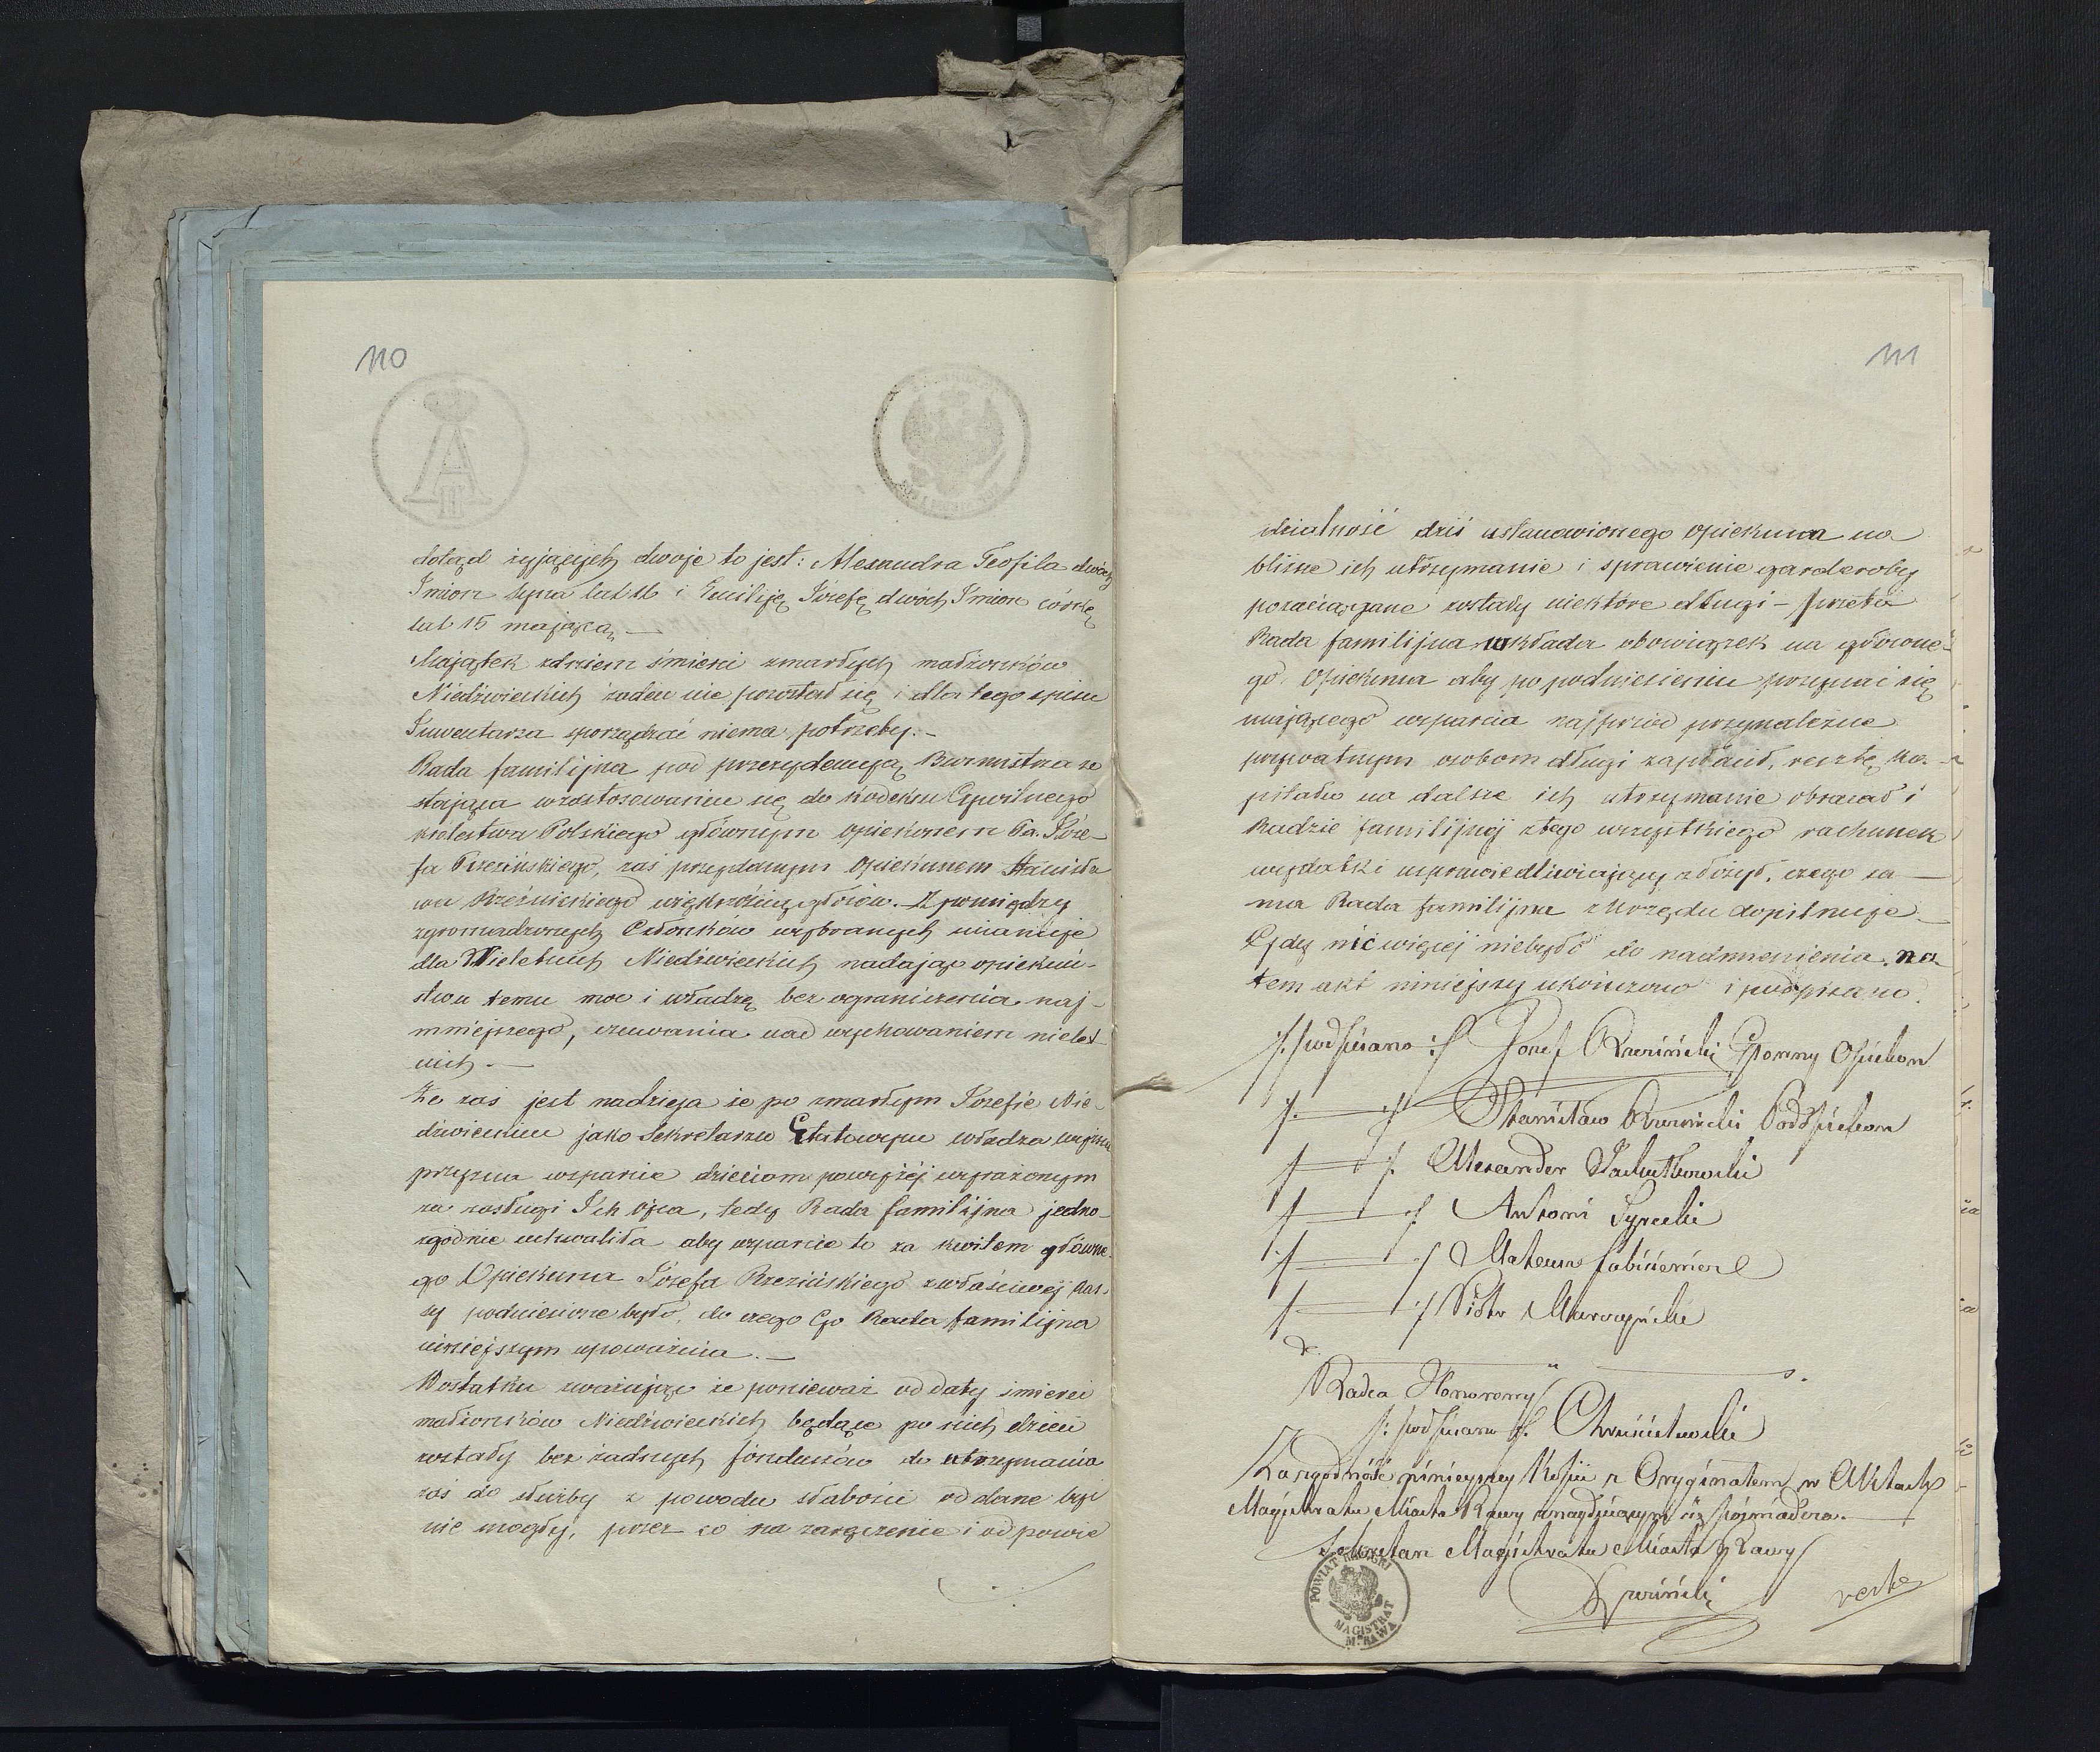 110
dotąd żyjących dwoje to jest: Alexandra Teofila dwóch
Imion syna lat 16 i Emiliję Józefę dwóch Imion córkę
lat 15 mającą. —
Majątek zdniem śmierci zmarłych małżonków
Niedźwieckich żaden nie pozostał się i dla tego spisu
Inwentarza sporządzać niema potrzeby. —
Rada familijna pod prezydencyą Burmistrza zo
stająca wzastosowaniu się do Kodeksu Cywilnego
Królestwa Polskiego głównym opiekunem Pa. Józe-
fa Rzezińskiego, zaś przydanym Opiekunem Stanisła
wa większością głosów. Z pomiędzy
zgromadzonych Członków wybranych mianuje
dla Nieletnich Niedźwieckich nadając opiekuń-
stwu temu moc i władzę bez ograniczenia naj-
mniejszego, czuwania nad wychowaniem nielet-
nich. —
Że zaś jest nadzieja że po zmarłym Józefie Nie-
dźwieckim jako Sekretarzu Etatowym władza wyższa
przyzna wsparcie dzieciom powyżéj wyrażonym
za zasługi Ich Ojca, tedy Rada familijna jedno-
zgodnie uchwaliła aby wsparcie to za kwitem główne-
go Opiekuna Józefa Rzezińskiego zwłaściwej Kas-
sy podniesione było, do czego Go Rada familijna
niniejszym upoważnia. —
Wostatku zważając że ponieważ od daty śmierci
małżonków Niedźwieckich będące po nich dzieci
zostały bez żadnych fonduszów do utrzymania
zaś do służby z powodu słabości oddane być
nie mogły, przez co na zaręczenie i odpowie
111
dzialność dziś ustanowionego opiekuna na
bliższe ich utrzymanie i sprawienie garderoby
pozaciągane zostały niektóre długi — przeto
Rada familijna wkłada obowiązek na główne-
go Opiekuna aby po podniesieniu przyznać się
mającego wsparcia najprzód przynależne
prywatnym osobom długi zapłacił, resztę ka-
pitału na dalsze ich utrzymanie obracał i
Radzie familijnéj ztego wszystkiego rachunek
wydatki usprawiedliwiający złożył, czego sa-
ma Rada familijna zUrzędu dopilnuje. —
Gdy nic więcéj niebyło do nadmienienia, na
tem akt niniejszy ukończono i podpisano.
/: podpisano :/ Jozef Rzeziński Głowny Opiekun
/: — :/ Stanisław Podopiekun
/: — :/ Alexander
/: — :/ Antoni
/: — :/ Mateusz
/: — :/ Piotr
Radca Honorowy
/: podpisano :/
Za zgodność niniejszej Kopii z Oryginałem w Aktach
Magistratu Miasta Rawy znajdującym się poświadcza. —
Sekretarz Magistratu Miasta Rawy
Rzeziński
verte
POWIAT RAWSKI
MAGISTRAT
M. RAWA